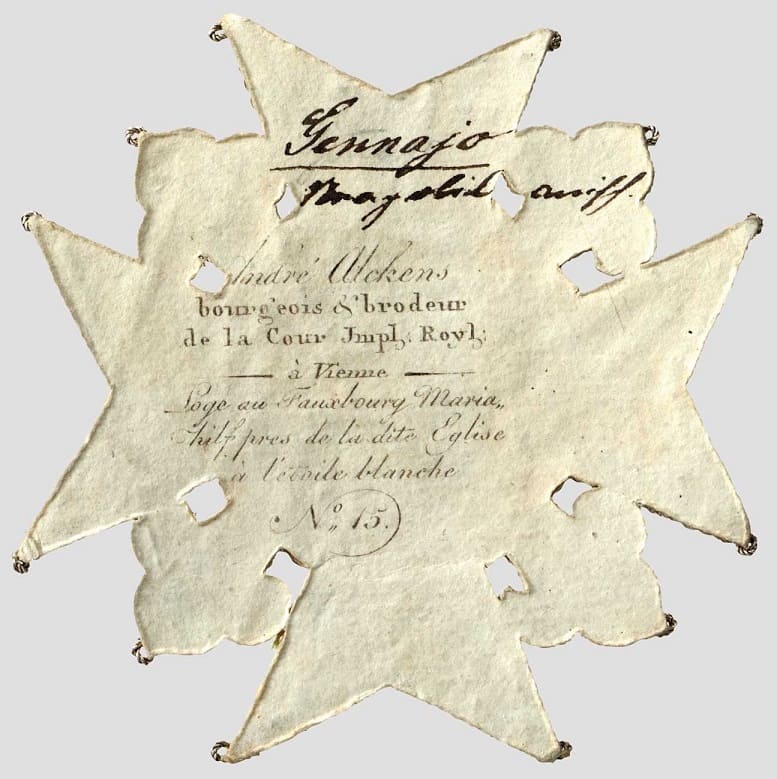 Gennajo
André Alckens
bourgeois & brodeur
de la Cour Impl: Royl:
à Vienne
Logé au Fauxbourg Maria„
hilf pres de la dite Eglise
à l'étoile blanche
No„ 15.